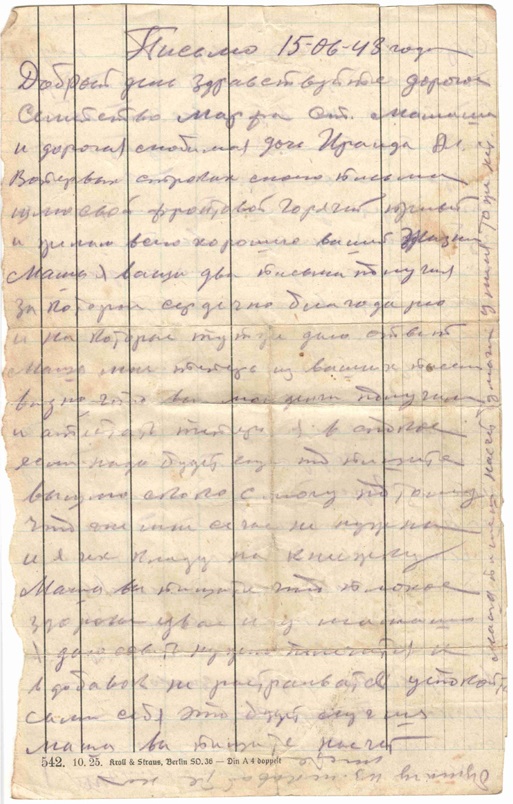 Письмо 15-06-43 года
Добрый день здравствуйте дорогое
Семейство Марфа Ст. Мамаша
и дорогая любимая доч Ираида
Вопервых строках своего письма
шлю свой фронтовой горячий привет
и желаю всего хорошего вашей жизни
Маша я ваши два письма получил
за которые сердечно благодарю
и на которые тут же даю ответ
Маша мне теперь из ваших писем
видно что вы мои деньги получили
и аттестат теперь я в спокое
если надо будет еще то пишите
вышлю сколо смогу потому
что они мне сечас не нужны
и я их кладу на книжку
Маша вы пишите что плохое
здоровье у вас и у мамаши
я даю совет нужно лечится и
в добавок не растраиватся успокоить
сами себя это будет лучше
Маша вы пишите насчет
542. 10. 25. Kroll & Straus, Berlin SO. 36 — Din A 4 doppelt